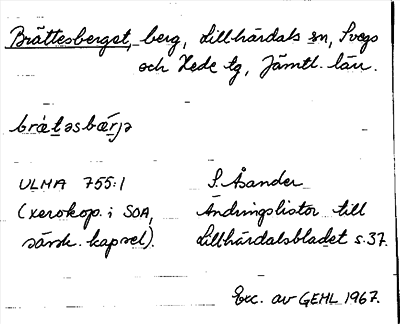 Brättesberget, berg, Lillhärdals sn, Svegs
och Hede tg, Jämtl. län.
brät̲əsbær̲jə
ULMA 755:1 S. Åsander
(xerokop. i SOA, Ändringslistor till
särsk. kapsel). Lillhärdalsbladet s. 37.
Exc. av GEHL 1967.